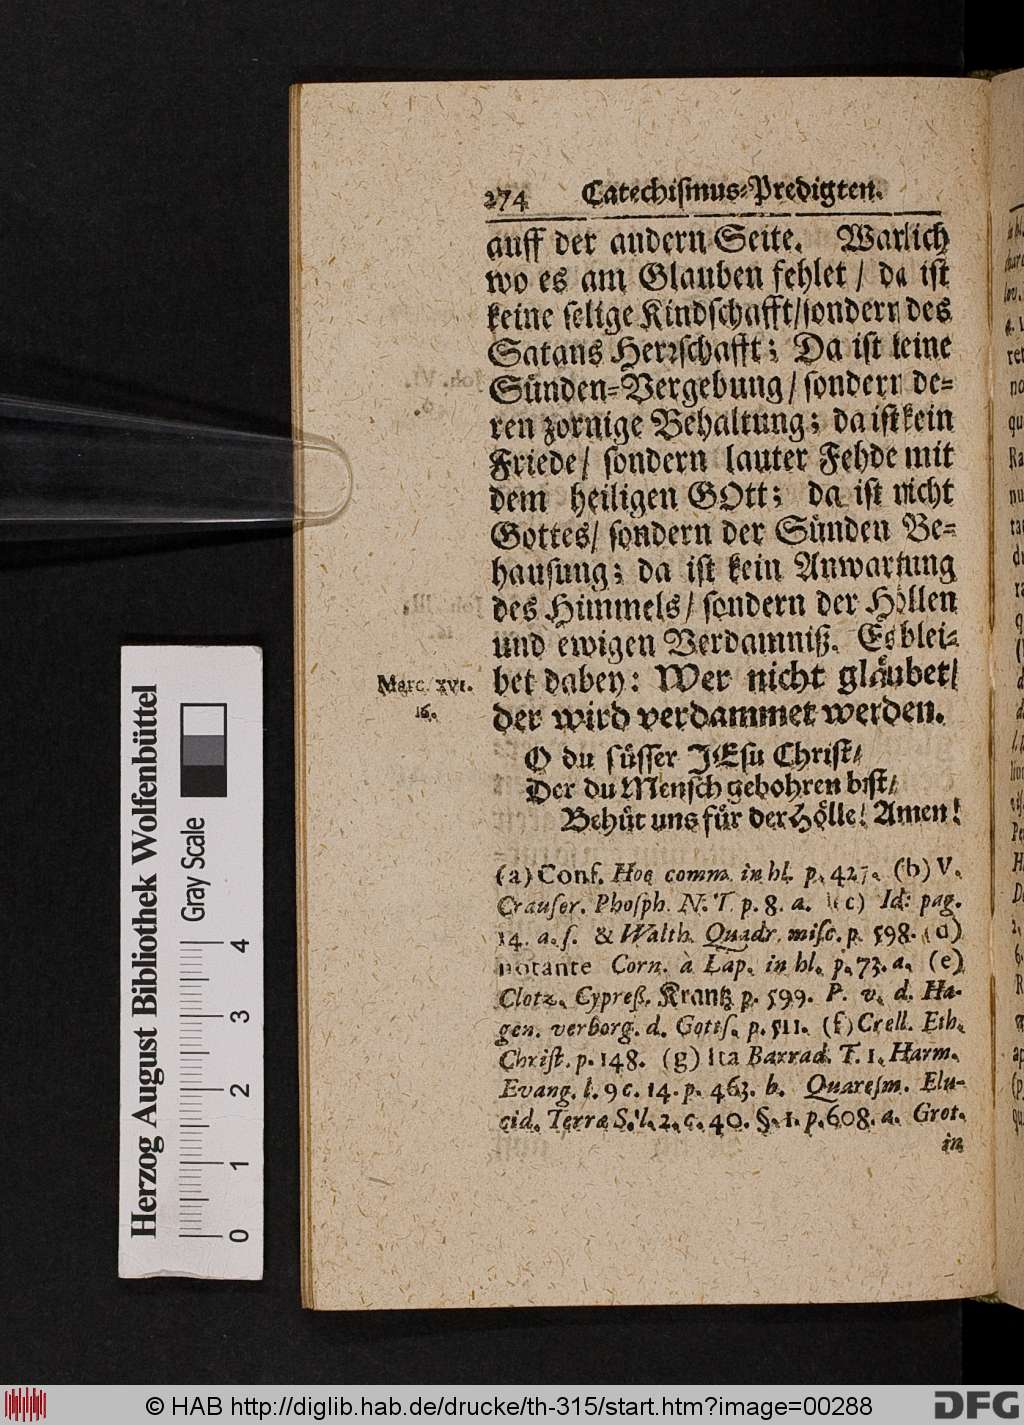 274 Catechiſmus-Predigten.
auff der andern Seite. Warlich
wo es am Glauben fehlet / da iſt
keine ſelige Kindſchafft/ſondern des
Satans Herrſchafft; Da iſt keine
Sünden-Vergebung / ſondern de-
ren zornige Behaltung; da iſt kein
Friede / ſondern lauter Fehde mit
dem heiligen GOtt; da iſt nicht
Gottes/ ſondern der Sünden Be-
hauſung; da iſt kein Anwartung
des Himmels/ ſondern der Höllen
und ewigen Verdamniß. Es blei-
bet dabey: Wer nicht gläubet/
der wird verdammet werden.
Marc. XVI.
16.
O du ſüſſer JEſu Chriſt/
Der du Menſch gebohren biſt/
Behüt uns für der Hölle! Amen!
(a) Conf. Hoe comm. in hl. p. 427. (b) V.
Crauſer. Phoſph. N. T. p. 8. a. (c) Id: pag.
14. a. ſ. & Walth. Quadr. miſc. p. 598. (d)
notante Corn. à Lap. in hl. p. 73. a. (e)
Clotz. Cypreß. Krantz p. 599. P. v. d. Ha-
gen. verborg. d. Gottſ. p. 511. (f) Crell. Eth.
Chriſt. p. 148. (g) Ita Barrad. T. 1. Harm.
Evang. l. 9 c. 14. p. 463. b. Quareſm. Elu-
cid. Terræ S. l. 2. c. 40. §. 1. p. 608. a. Grot.
in
Herzog August Bibliothek Wolfenbüttel
Gray Scale
0 1 2 3 4
© HAB http://diglib.hab.de/drucke/th-315/start.htm?image=00288
DFG